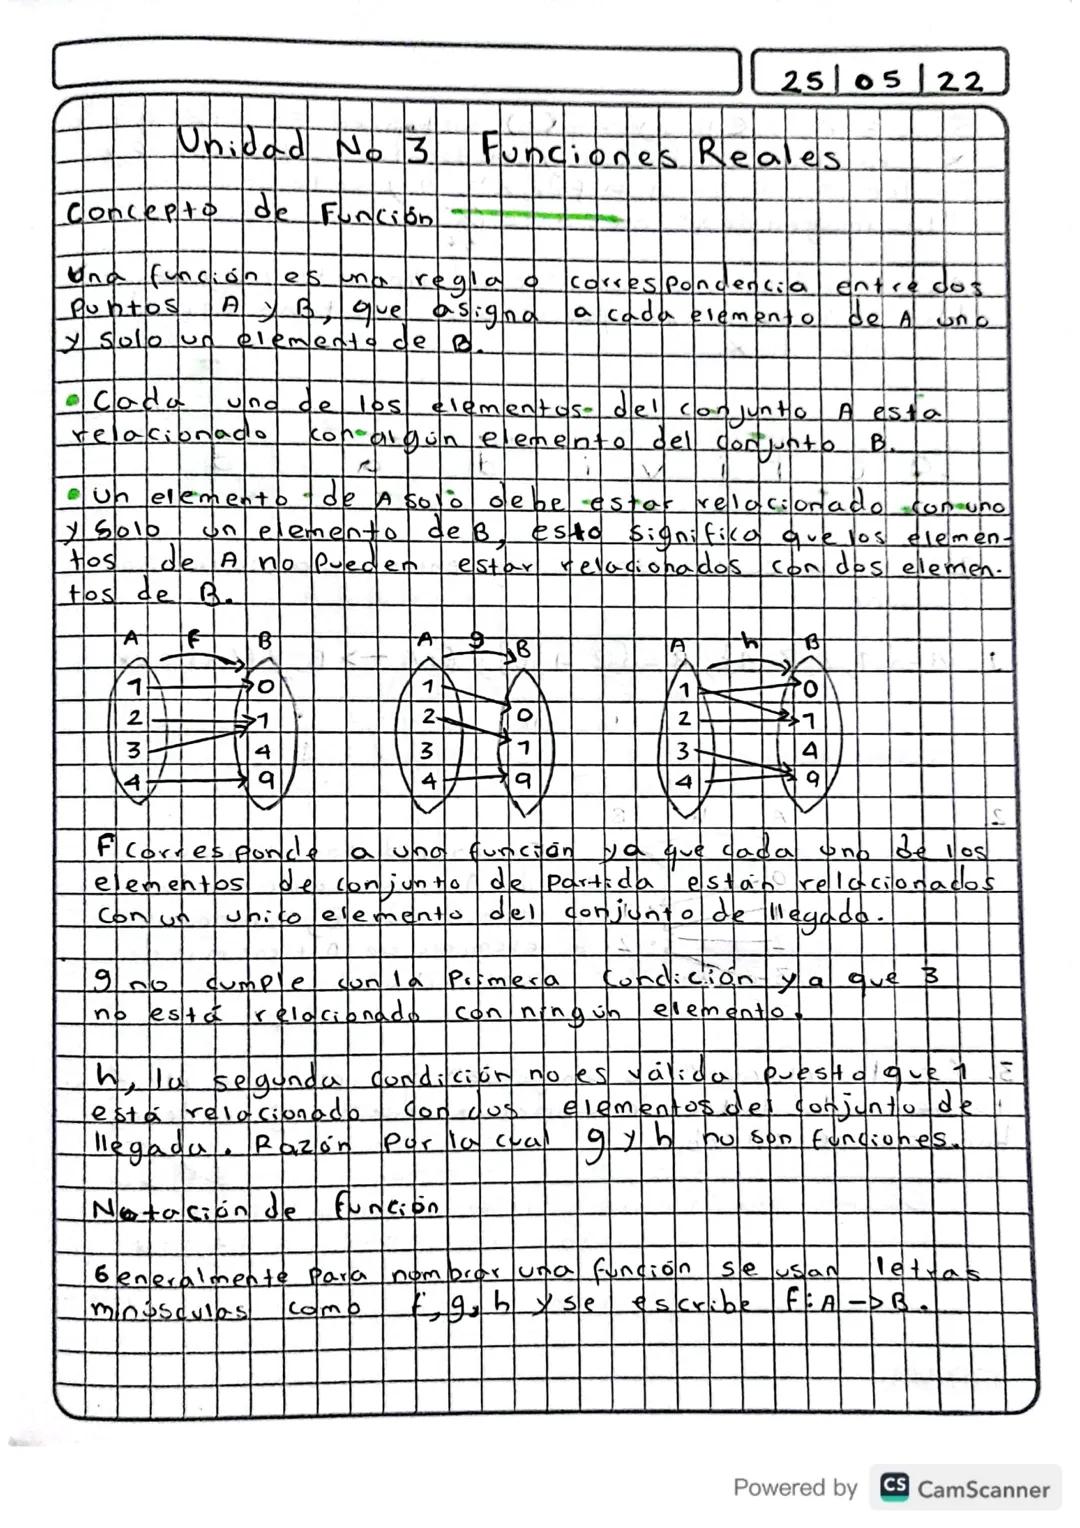 25/05/22
Unidad No 3 Funciones Reales
Concepto de Función
Una función es una regla o correspondencia entre dos
puntos A y B, que asigna a cada elemento de A uno
y solo un elemento de B.
• Cada uno de los elementos del conjunto A esta
relacionado con algún elemento del conjunto B.
• Un elemento de A solo debe estar relacionado con uno
y solo un elemento de B, esto significa que los elemen-
tos de A no pueden estar relacionados con dos elemen-
tos de B.
A f B A g B A h B
1 0 1 0 1 0
2 1 2 1 2 1
3 4 3 9 3 4
4 9 4 4 9
F corresponde a una función ya que cada uno de los
elementos de conjunto de partida están relacionados
con un unico elemento del conjunto de llegada.
g no cumple con la Primera Condición ya que 3
no está relacionado con ningún elemento.
h, la segunda condición no es válida puesto que 1
está relacionado con dos elementos del conjunto de
llegada. Razón por la cual g y h no son funciones.
Notación de función
Generalmente para nombrar una función se usan letras
minúsculas como f, g, h y se escribe f: A -> B.
Powered by CS CamScanner